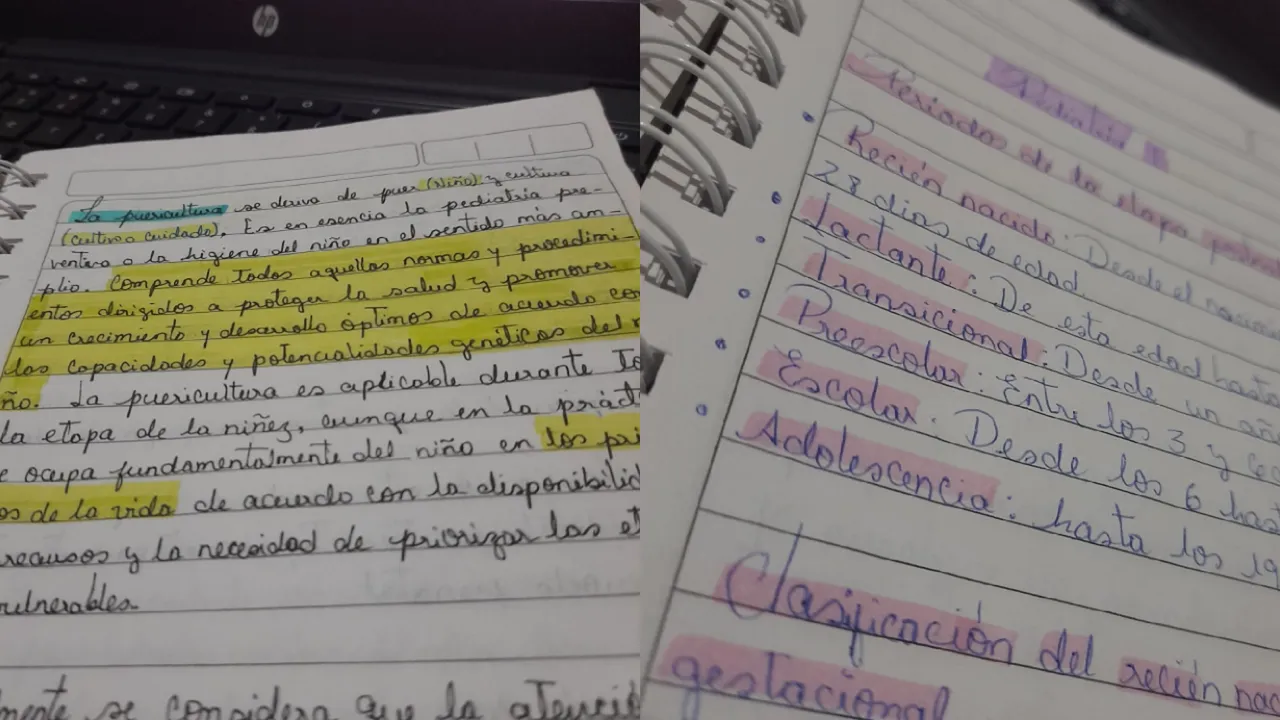 hp
La puericultura se deriva de puer (niño) y cultura
(cultivo o cuidado). Es en esencia la pediatría pre-
ventiva o la higiene del niño en el sentido más am-
plio. Comprende todas aquellas normas y procedimi-
entos dirigidos a proteger la salud y promover
un crecimiento y desarrollo óptimos de acuerdo con
las capacidades y potencialidades genéticas del
ño. La puericultura es aplicable durante to
la etapa de la niñez, aunque en la práct
e ocupa fundamentalmente del niño en los pri
os de la vida de acuerdo con la disponibilid
recursos y la necesidad de priorizar las et
vulnerables.
mente se considera que la atenció
Periodos de la etapa
Recién nacido: Desde el
28 dias de edad.
Lactante: De esta edad hasta
Transicional: Desde un añ
Preescolar: Entre los 3 y
Escolar: Desde los 6 has
Adolescencia: hasta los 19
Clasificación del recién nac
gestacional